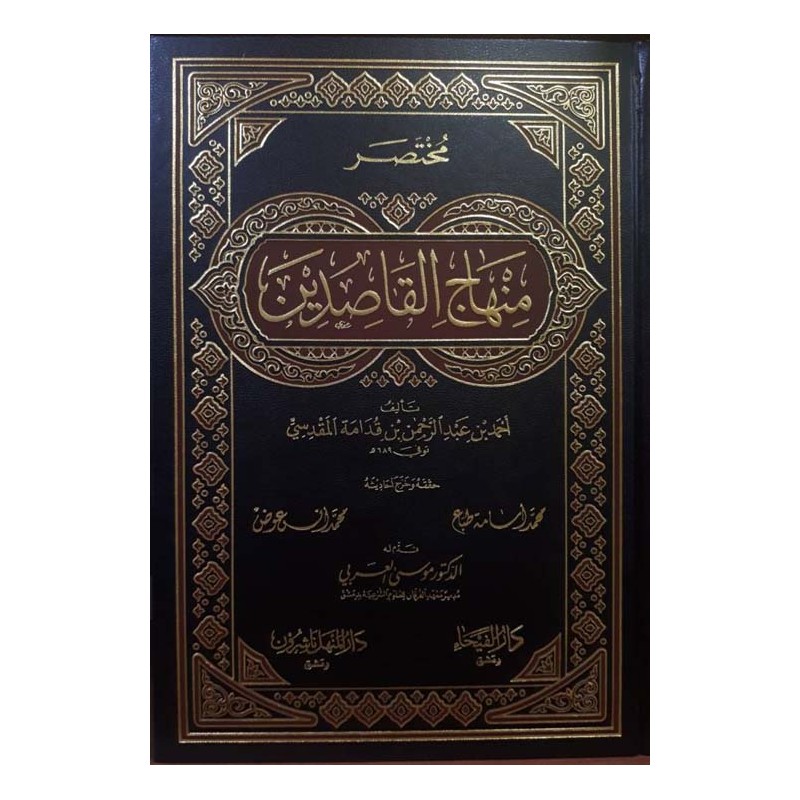 مُخْتَصَر
مِنْهَاجُ القَاصِدِيْنَ
تَأليفُ
أحمَد بْن عَبْد الرَّحْمٰن بْن قُدَامَة المَقْدِسيِّ
توفي ٦٨٩ هـ
حققه وخرج أحاديثه
محمد أسامة طباع
محمد أنس عوض
قدم له
الدكتور موسى العربي
مدير معهد الفرقان للعلوم الشرعية بدمشق
دَارُ الفَيْحَاء
دمشق
دَارُ المنهَل نَاشِرُون
دمشق